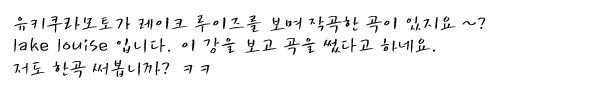 유키쿠라모토가 레이크 루이즈를 보며 작곡한 곡이 있지요 ~?
lake louise 입니다. 이 강을 보고 곡을 썼다고 하네요.
저도 한곡 써봅니까? ㅋㅋ